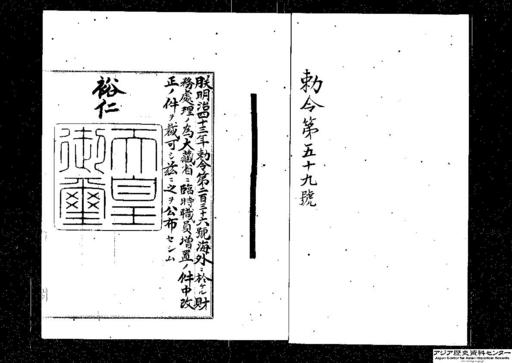 勅令第五十九號
朕明治四十三年勅令第二百三十六號海外ニ於ケル財
務處理ノ為大藏省ニ臨時職員増置ノ件中改
正ノ件ヲ裁可シ茲ニ之ヲ公布セシム
裕仁
天皇
御璽
アジア歴史資料センター
Japan Center for Asian Historical Records